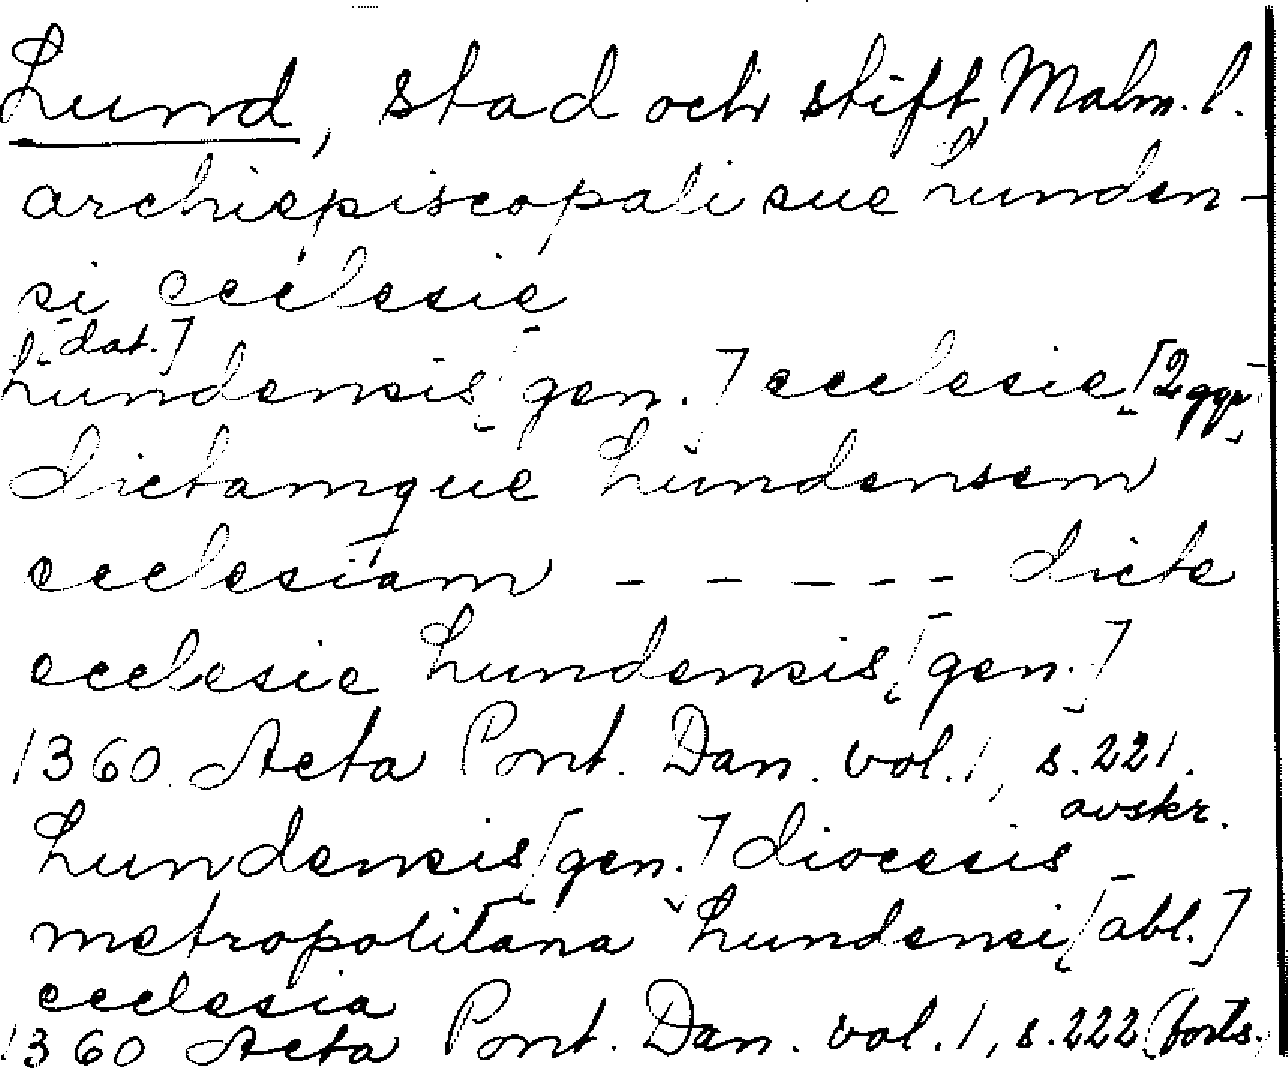 Lund, stad och stift, Malm. l.
archiepiscopali sue Lunden-
si ecclesie
[dat.]
Lundensis [gen.] ecclesie [2 ggr]
dictamque Lundensem
ecclesiam - - - - - dicte
ecclesie Lundensis [gen.]
1360. Acta Pont. Dan. vol. 1, s. 221.
avskr.
Lundensis [gen.] diocesis
metropolitana Lundensi [abl.]
ecclesia
1360 Acta Pont. Dan. vol. 1, s. 222 (forts.)